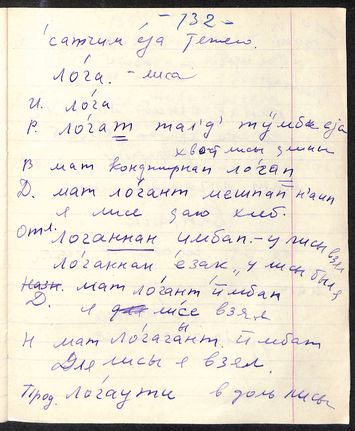 - 132 -
сатчим е́ја тежего.
ло́га. - лиса
И. ло́га
Р. ло́гат тал'д' тӱмбе еја
хвост лисы длины
В мат кондҗирнап ло́гап
Д. мат ло́гант мешпап н'аип
я лисе даю хлеб.
Отл. логаннан имбап. - у лисы взял
логаннан е́зак " у лисы был я
Д. мат ло́гант и́мбап
я лисе взял
Н мат ло́га́гант. и́мбат
Для лисы я взял.
Прод. ло́гаути в доль лисы